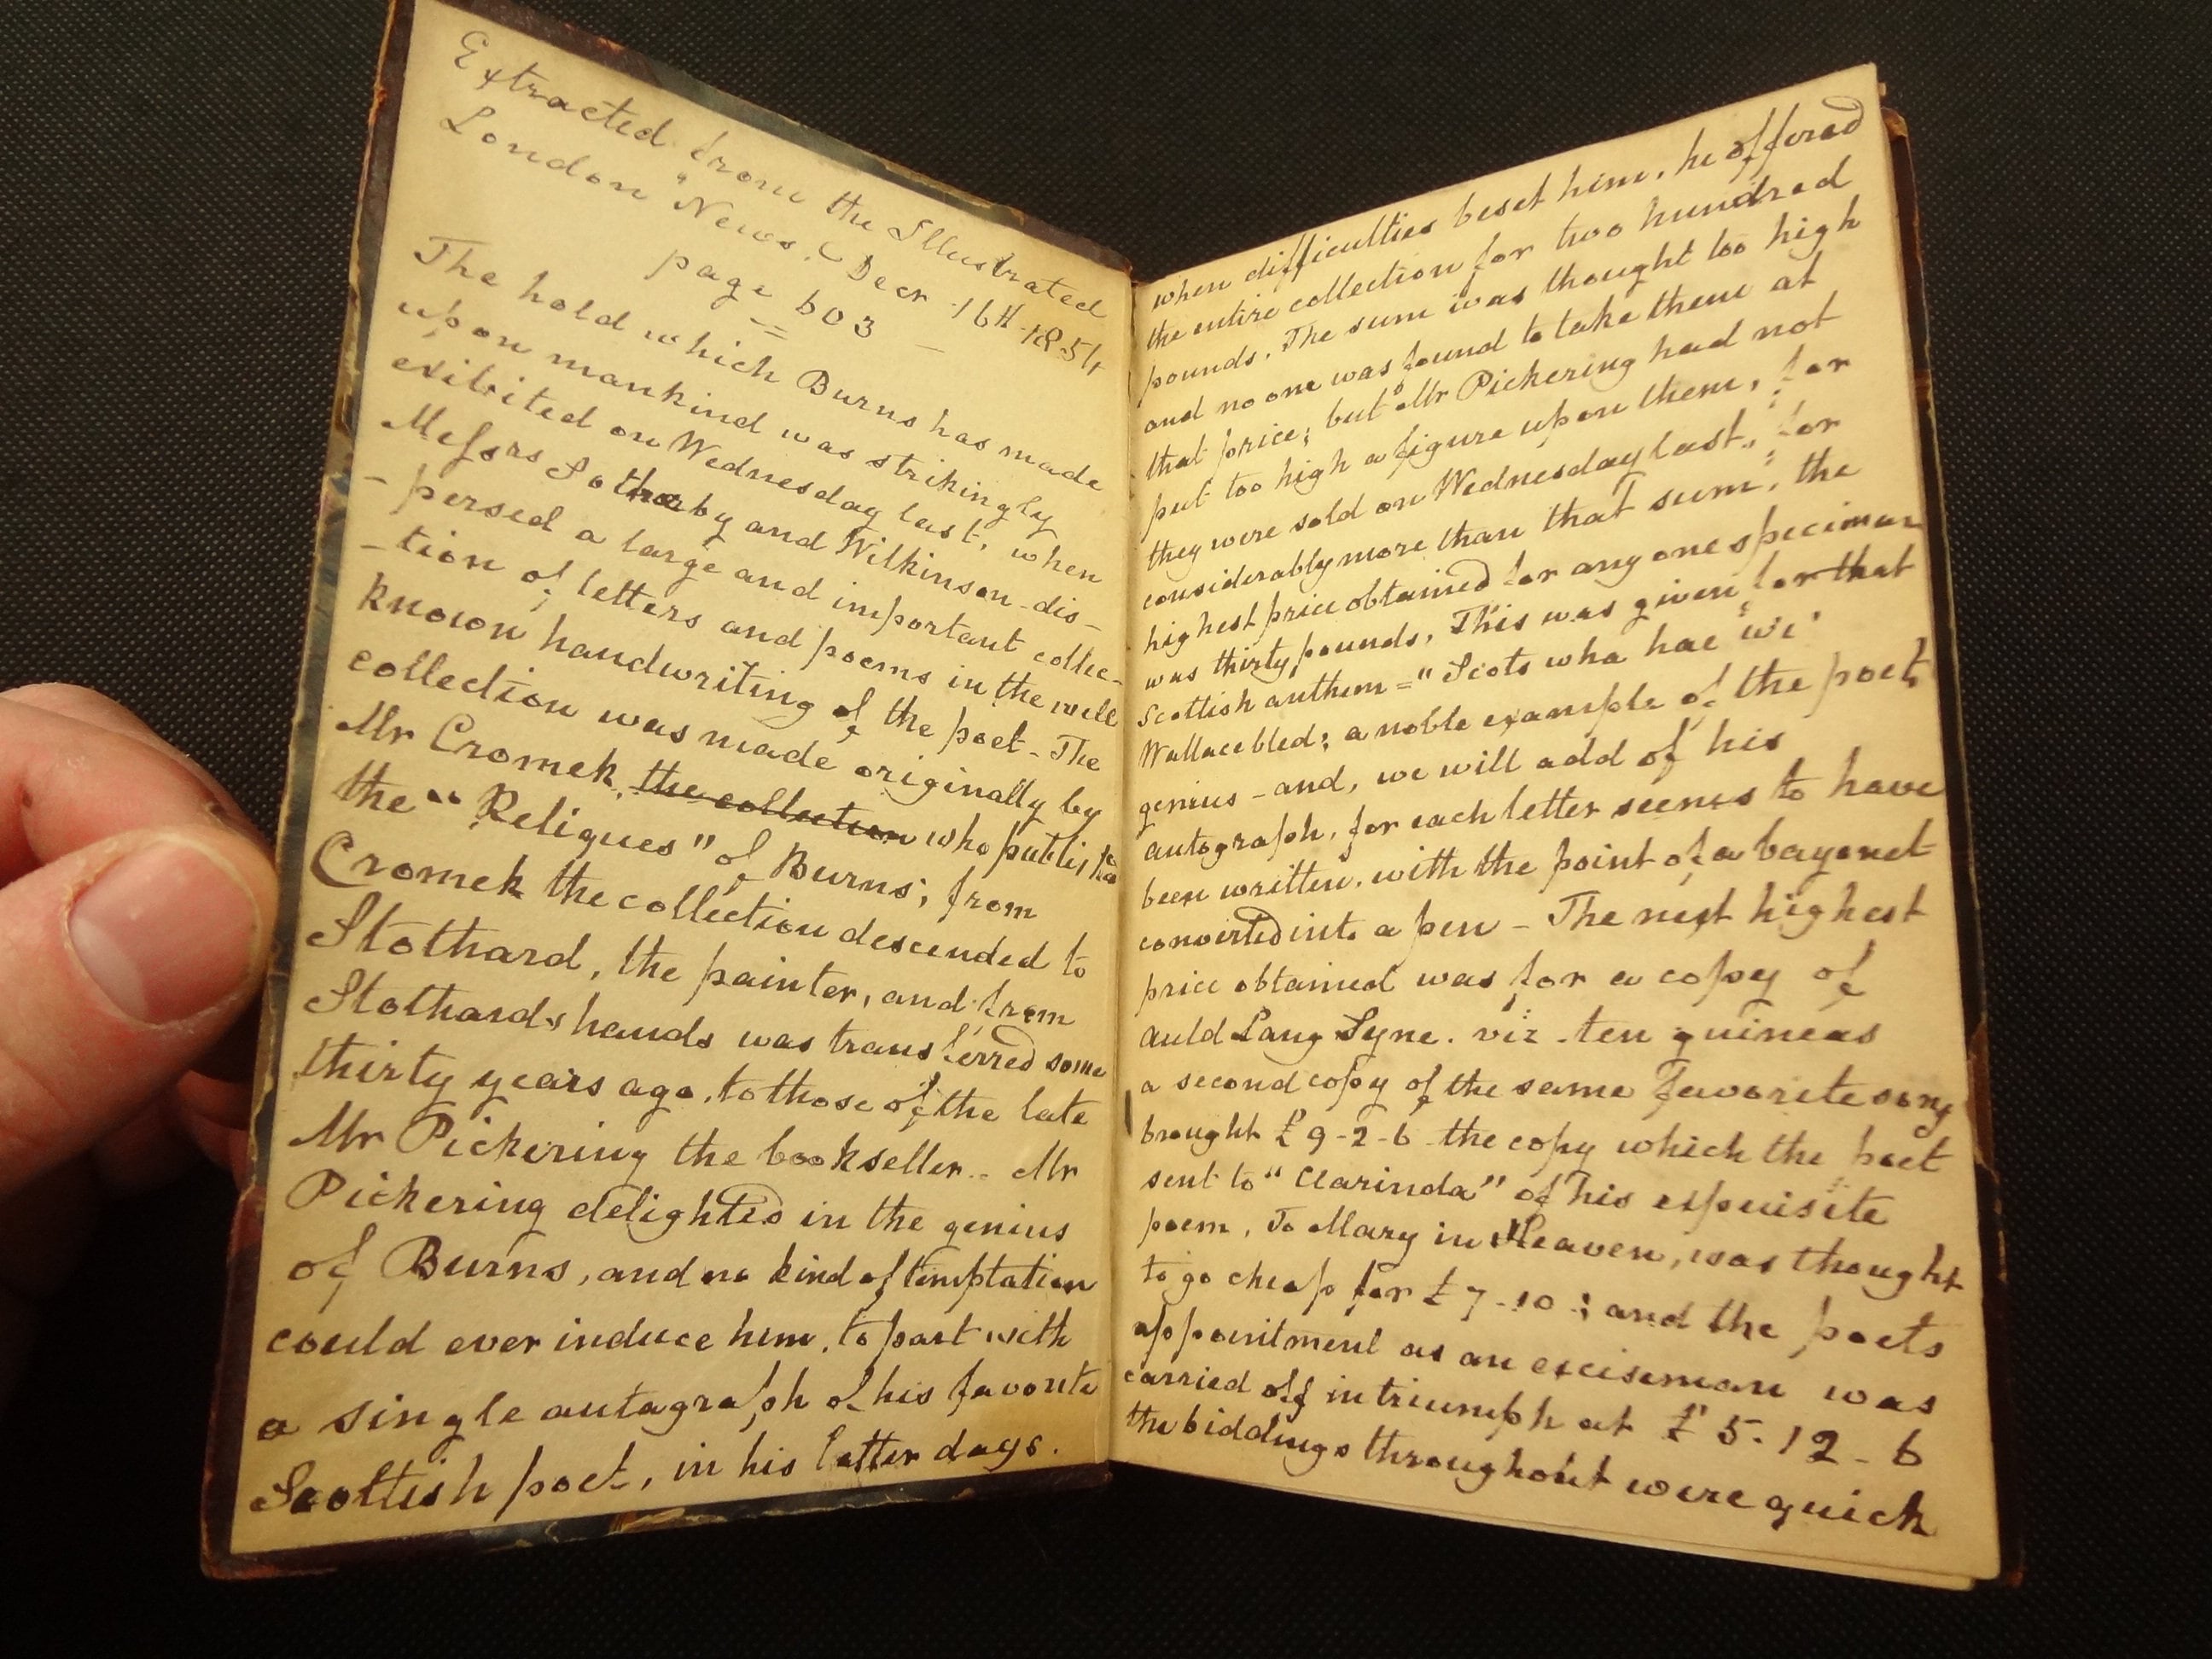 Extracted from the Illustrated
London "News. (Decr 16th 1854
page 603
The hold which Burns has made
upon mankind was strikingly
exibited on Wednesday last, when
Messrs Sotheby and Wilkinson dis-
-persed a large and important collec-
-tion of letters and poems in the well
known handwriting of the poet - The
collection was made originally by
Mr Cromek, the collection who publish
the "Reliques" of Burns; from
Cromek the collection descended to
Stothard, the painter, and from
Stothards hands was transferred some
thirty years ago, to those of the late
Mr Pickering the bookseller.. Mr
Pickering delighted in the genius
of Burns, and no kind of temptation
could ever induce him, to part with
a single autagraph of his favorite
Scottish poet, in his latter days.
when difficulties beset him, he offered
the entire collection for two hundred
pounds. The sum was thought too high
and no one was found to take them at
that price; but Mr Pickering had not
put too high a figure upon them, for
they were sold on Wednesday last, for
considerably more than that sum, the
highest price obtained for any one specimen
was thirty pounds. This was given for that
Scottish anthem = "Scots wha hae wi'
Wallace bled; a noble example of the poets
genius - and, we will add of his
autograph, for each letter seems to have
been written, with the point of a bayonet
converted into a pen - The next highest
price obtained was for a copy of
auld Lang Syne. viz. ten guineas
a second copy of the same favorite song
brought £9-2-6 the copy which the poet
sent to "Clarinda" of his exquisite
poem, To Mary in Heaven, was thought
to go cheap for £7-10-; and the poets
appointment as an exciseman was
carried off in triumph at £5-12-6
the biddings throughout were quick